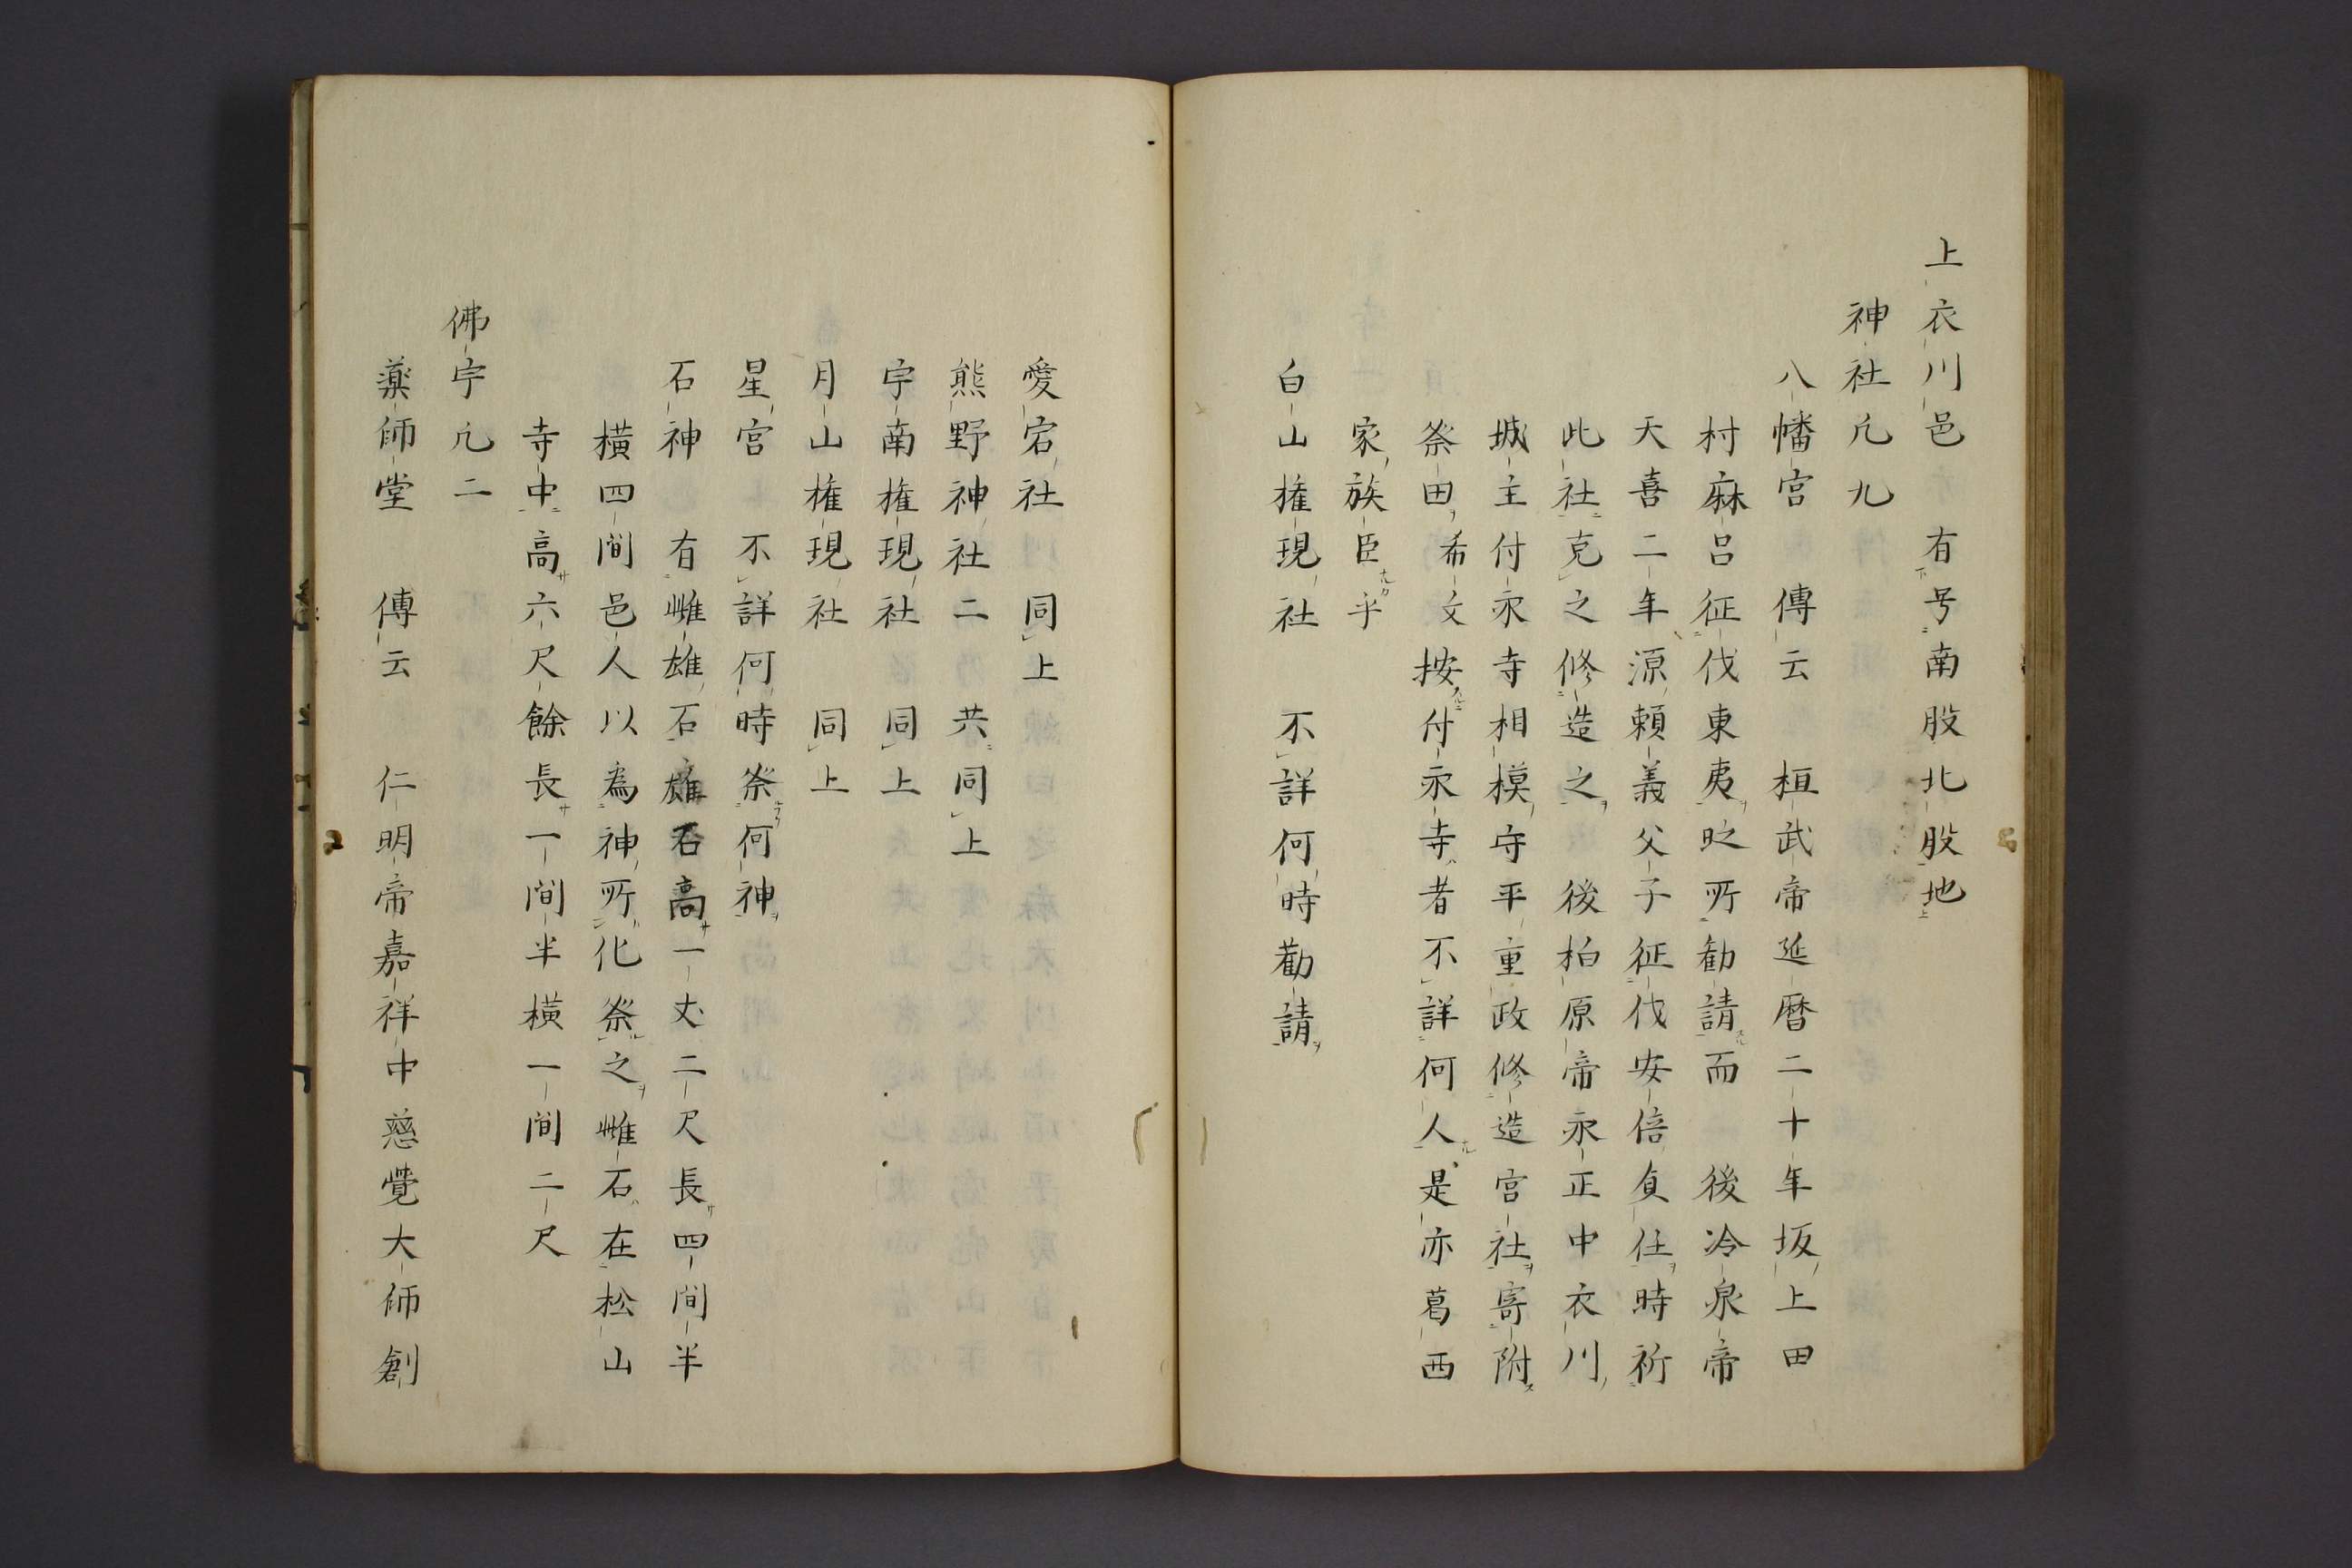 上衣川邑 有号南股北股地
神社凢九
八幡宮 傳云 桓武帝延暦二十年坂上田
村麻呂征伐東夷之所勧請而 後冷泉帝
天喜二年源頼義父子征伐安倍貞任時祈
此社克之修造之 後柏原帝永正中衣川
城主付永寺相模守平重政修造宮社寄附
祭田希文按付永寺者不詳何人是亦葛西
家族臣乎
白山権現社 不詳何時勸請
愛宕社 同上
熊野神社二 共同上
宇南権現社 同上
月山権現社 同上
星宮 不詳何時祭何神
石神 有雌雄石雄石高一丈二尺長四間半
横四間邑人以為神所化祭之雌石在松山
寺中高六尺餘長一間半横一間二尺
佛宇凢二
薬師堂 傳云 仁明帝嘉祥中慈覺大師創